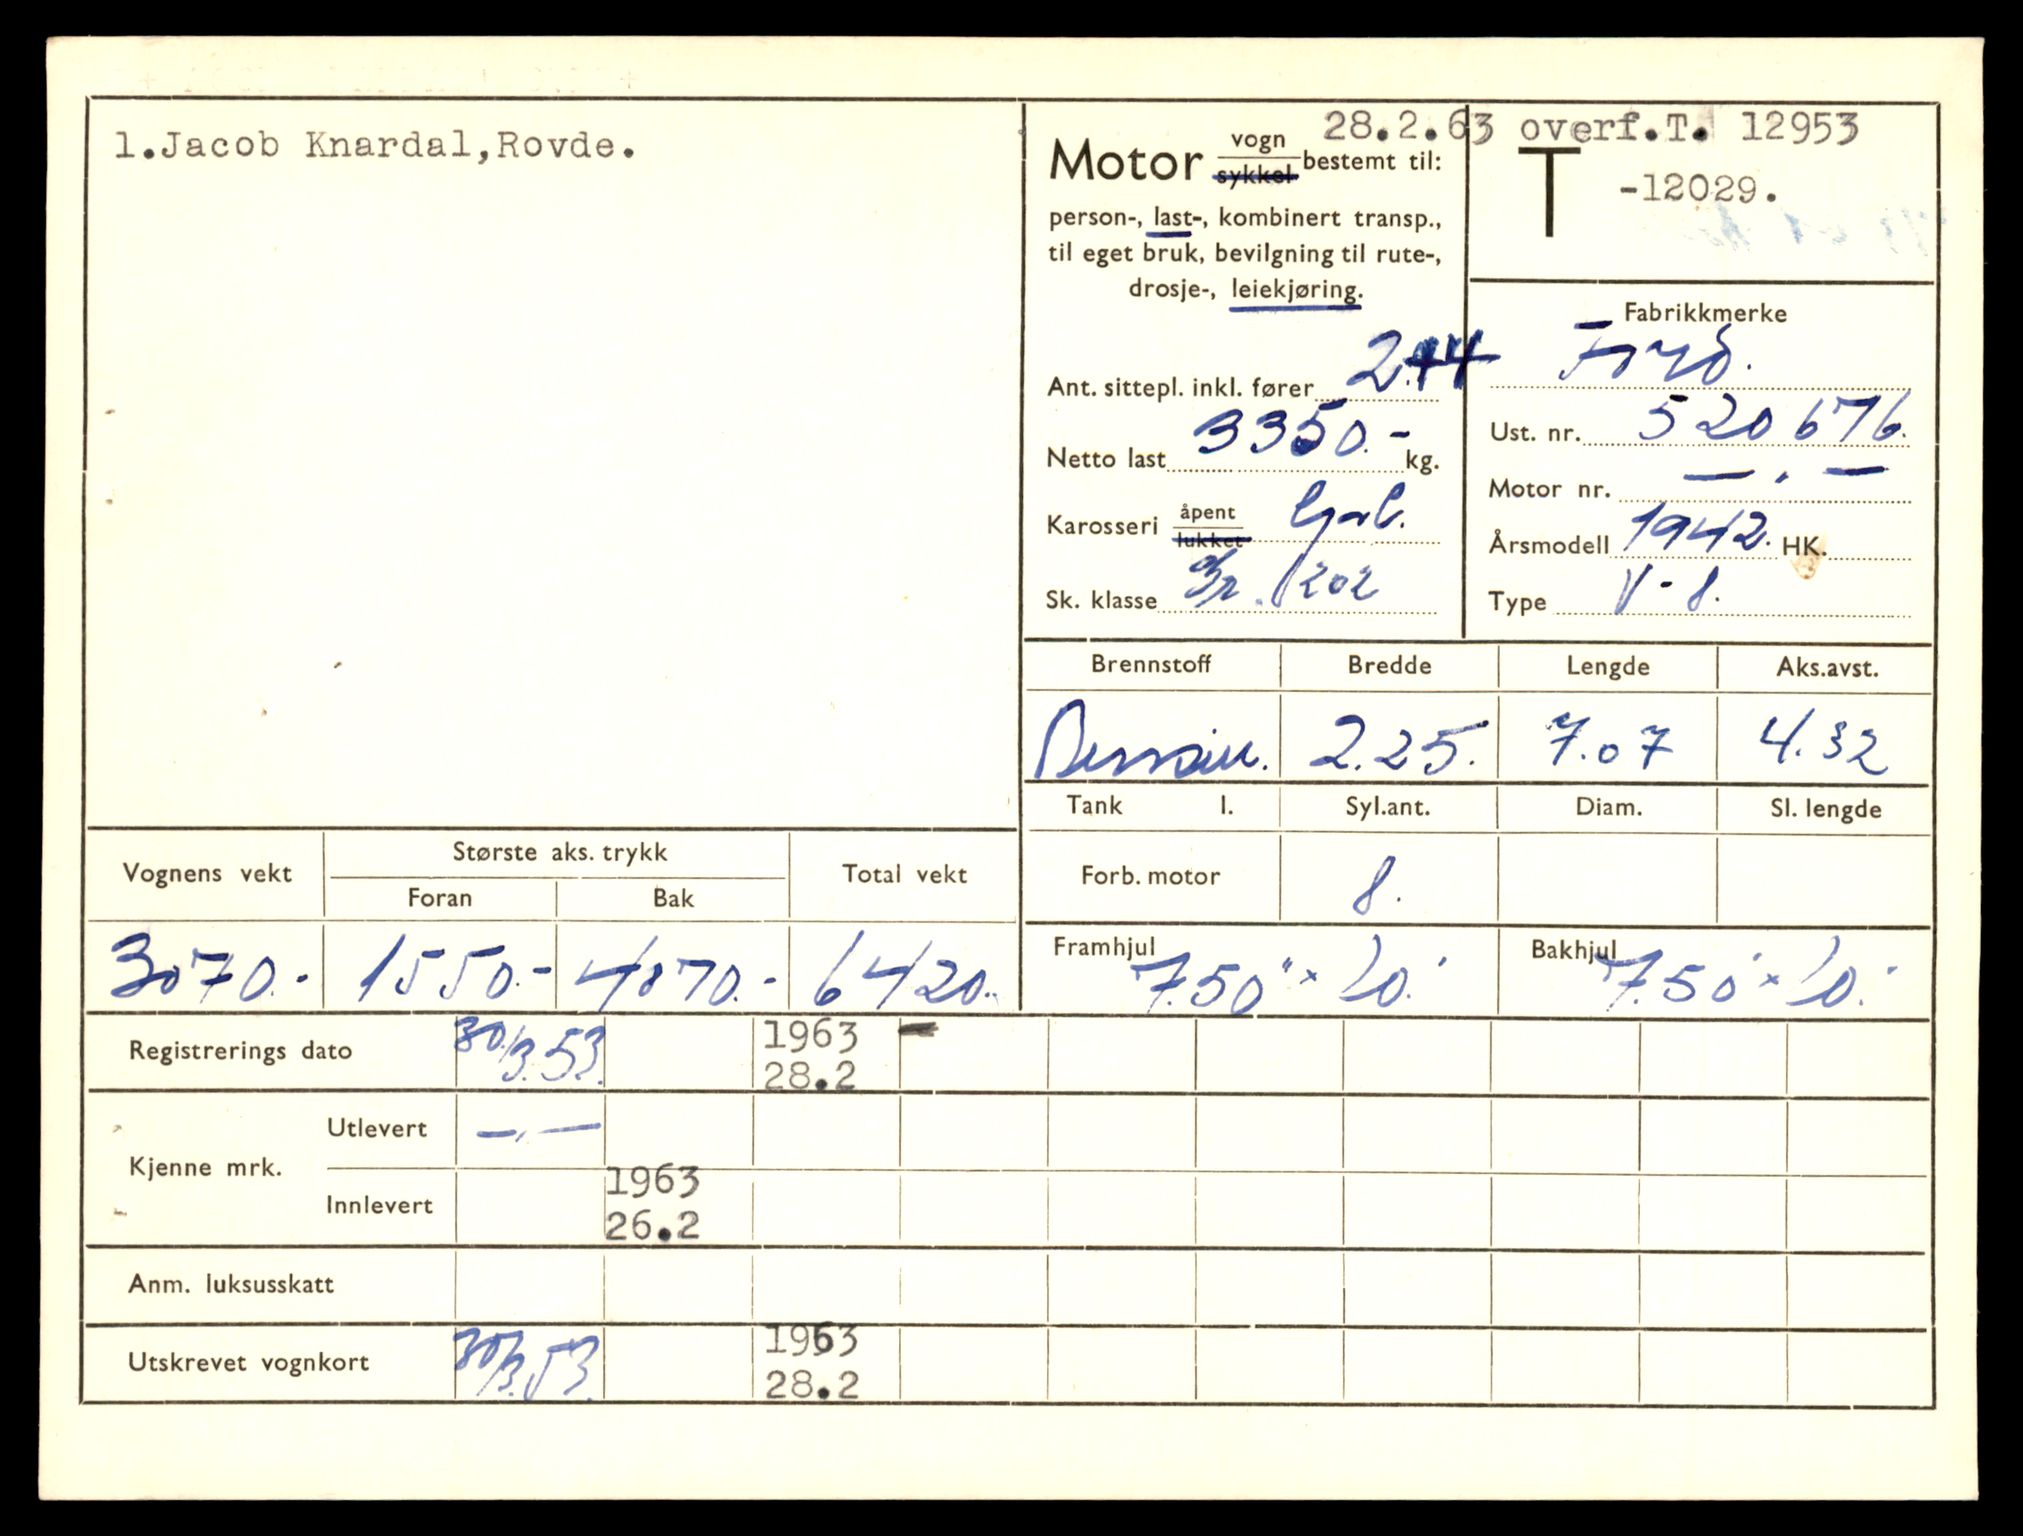 1.Jacob Knardal,Rovde.
28.2.63 overf.T. 12953
Motor vogn sykkel bestemt til:
person-, last-, kombinert transp.,
til eget bruk, bevilgning til rute-,
drosje-, leiekjøring.
T -12029.
Ant. sittepl. inkl. fører 2+4
Netto last 3350.- kg.
Karosseri åpent lukket
Sk. klasse
Fabrikkmerke
Ford.
Ust. nr. 520676.
Motor nr. — . —
Årsmodell 1942. HK.
Type V-8.
Brennstoff Bredde Lengde Aks.avst.
Bensin. 2.25. 7.07 4.32
Tank l. Syl.ant. Diam. Sl. lengde
Forb. motor 8.
Framhjul 7.50" × 20" Bakhjul 7.50" × 20"
Vognens vekt Største aks. trykk Total vekt
Foran Bak
3070.- 1550.- 4870.- 6420.-
Registrerings dato 30/3.53. 1963 -
28.2
Kjenne mrk. Utlevert — . —
Innlevert 1963
26.2
Anm. luksusskatt
Utskrevet vognkort 30/3.53. 1963
28.2